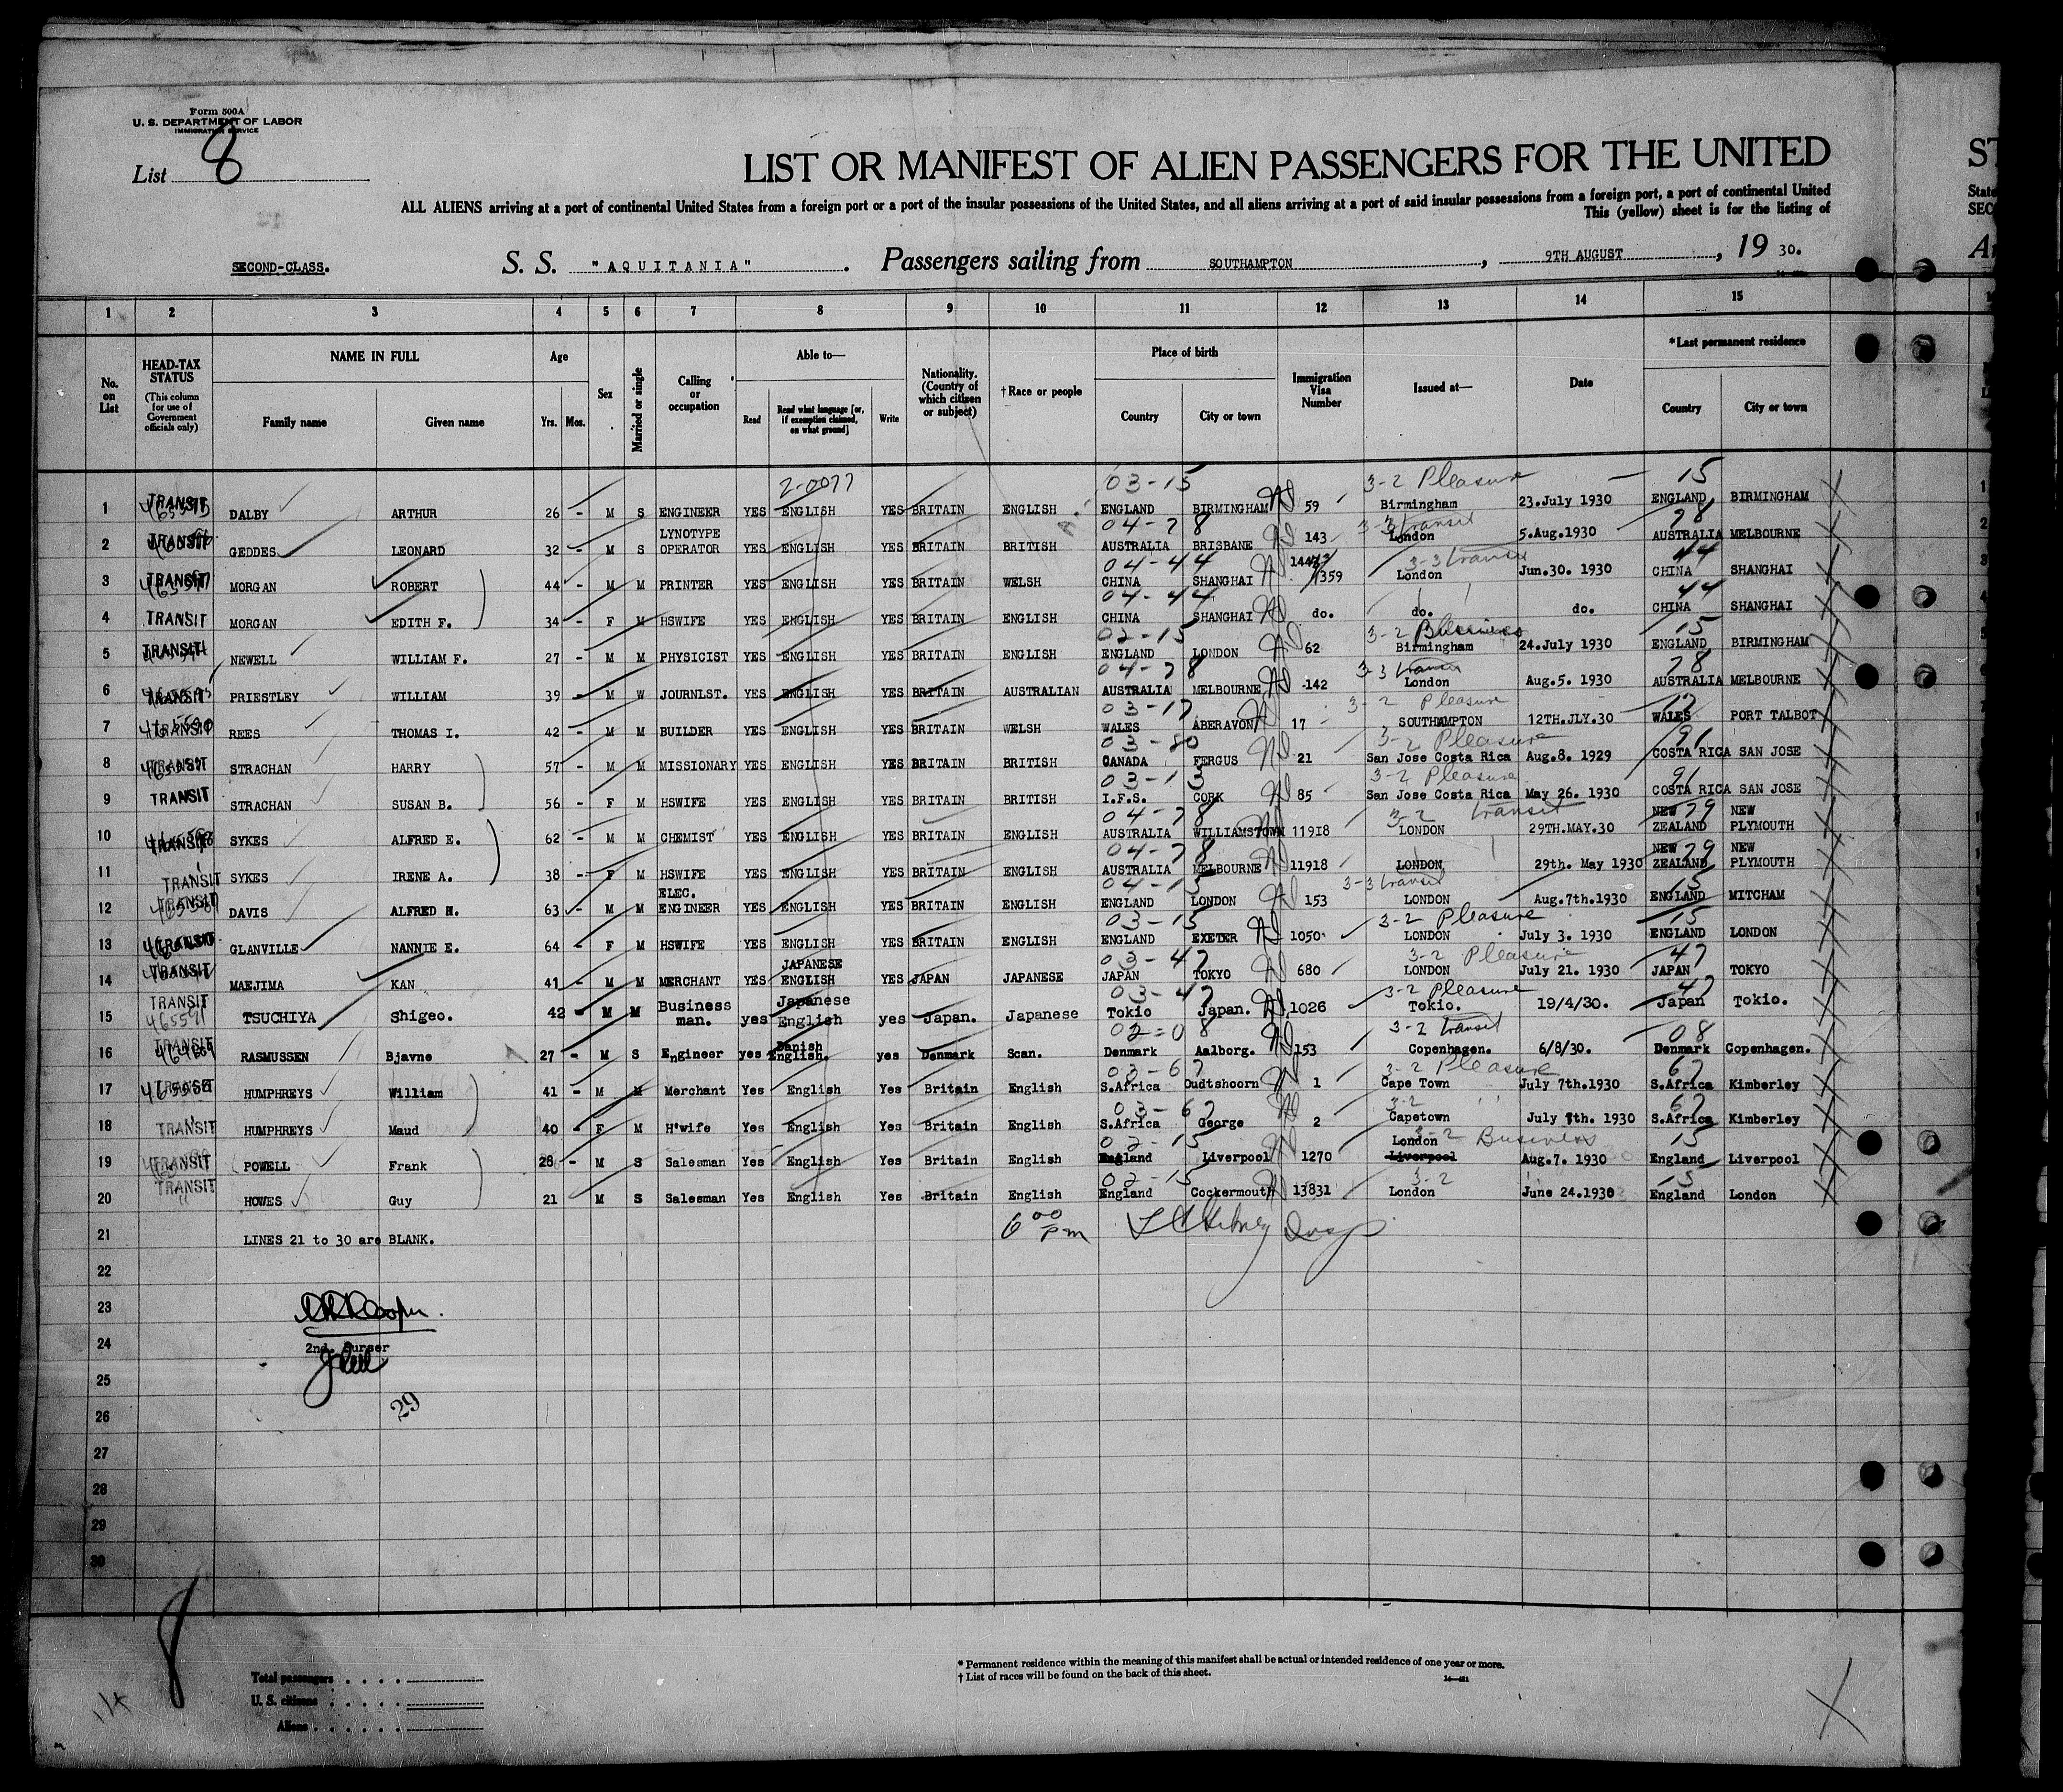 Form 500A
U. S. DEPARTMENT OF LABOR
IMMIGRATION SERVICE
List 8
LIST OR MANIFEST OF ALIEN PASSENGERS FOR THE UNITED
ST
ALL ALIENS arriving at a port of continental United States from a foreign port or a port of the insular possessions of the United States, and all aliens arriving at a port of said insular possessions from a foreign port, a port of continental United
State
This (yellow) sheet is for the listing of
SEC
SECOND-CLASS. S. S. "AQUITANIA" . Passengers sailing from SOUTHAMPTON , 9TH AUGUST , 19 30.
1 2 3 4 5 6 7 8 9 10 11 12 13 14 15
No. on List
HEAD-TAX STATUS
(This column for use of Government officials only)
NAME IN FULL
Family name Given name
Age
Yrs. Mos.
Sex
Married or single
Calling or occupation
Able to—
Read
Read what language [or, if exemption claimed, on what ground]
Write
Nationality. (Country of which citizen or subject)
†Race or people
Place of birth
Country City or town
Immigration Visa Number
Issued at—
Date
*Last permanent residence
Country City or town
2-0077 03-15 3-2 Pleasure 15
1 TRANSIT DALBY ARTHUR 26 - M S ENGINEER YES ENGLISH YES BRITAIN ENGLISH ENGLAND BIRMINGHAM 59 Birmingham 23.July 1930 ENGLAND BIRMINGHAM
LYNOTYPE 04-78 3-3 transit 78
2 TRANSIT GEDDES LEONARD 32 - M S OPERATOR YES ENGLISH YES BRITAIN BRITISH AUSTRALIA BRISBANE 143 London 5.Aug.1930 AUSTRALIA MELBOURNE
04-44 3-3 transit 44
3 TRANSIT MORGAN ROBERT 44 - M M PRINTER YES ENGLISH YES BRITAIN WELSH CHINA SHANGHAI 359 London Jun.30. 1930 CHINA SHANGHAI
04-44 44
4 TRANSIT MORGAN EDITH F. 34 - F M HSWIFE YES ENGLISH YES BRITAIN ENGLISH CHINA SHANGHAI do. do. do. CHINA SHANGHAI
02-15 3-2 Business 15
5 TRANSIT NEWELL WILLIAM F. 27 - M M PHYSICIST YES ENGLISH YES BRITAIN ENGLISH ENGLAND LONDON 62 Birmingham 24.July 1930 ENGLAND BIRMINGHAM
04-78 3-3 transit 78
6 TRANSIT PRIESTLEY WILLIAM 39 - M W JOURNLST. YES ENGLISH YES BRITAIN AUSTRALIAN AUSTRALIA MELBOURNE 142 London Aug.5. 1930 AUSTRALIA MELBOURNE
03-17 3-2 Pleasure 17
7 TRANSIT REES THOMAS I. 42 - M M BUILDER YES ENGLISH YES BRITAIN WELSH WALES ABERAVON 17 SOUTHAMPTON 12TH.JLY.30 WALES PORT TALBOT
03-80 3-2 Pleasure 91
8 TRANSIT STRACHAN HARRY 57 - M M MISSIONARY YES ENGLISH YES BRITAIN BRITISH CANADA FERGUS 21 San Jose Costa Rica Aug.8. 1929 COSTA RICA SAN JOSE
03-13 3-2 Pleasure 91
9 TRANSIT STRACHAN SUSAN B. 56 - F M HSWIFE YES ENGLISH YES BRITAIN BRITISH I.F.S. CORK 85 San Jose Costa Rica May 26. 1930 COSTA RICA SAN JOSE
04-78 3-2 transit NEW 79 NEW
10 TRANSIT SYKES ALFRED E. 62 - M M CHEMIST YES ENGLISH YES BRITAIN ENGLISH AUSTRALIA WILLIAMSTOWN 11918 LONDON 29TH.MAY.30 ZEALAND PLYMOUTH
04-78 NEW 79 NEW
11 TRANSIT SYKES IRENE A. 38 - F M HSWIFE YES ENGLISH YES BRITAIN ENGLISH AUSTRALIA MELBOURNE 11918 LONDON 29th. May 1930 ZEALAND PLYMOUTH
ELEC. 04-15 3-3 transit 15
12 TRANSIT DAVIS ALFRED H. 63 - M M ENGINEER YES ENGLISH YES BRITAIN ENGLISH ENGLAND LONDON 153 LONDON Aug.7th.1930 ENGLAND MITCHAM
03-15 3-2 Pleasure 15
13 TRANSIT GLANVILLE NANNIE E. 64 - F M HSWIFE YES ENGLISH YES BRITAIN ENGLISH ENGLAND EXETER 1050 LONDON July 3. 1930 ENGLAND LONDON
JAPANESE 03-47 3-2 Pleasure 47
14 TRANSIT MAEJIMA KAN 41 - M M MERCHANT YES ENGLISH YES JAPAN JAPANESE JAPAN TOKYO 680 LONDON July 21. 1930 JAPAN TOKYO
Business Japanese 03-47 3-2 Pleasure 47
15 TRANSIT 465591 TSUCHIYA Shigeo. 42 - M M man. yes English yes Japan. Japanese Tokio Japan. 1026 Tokio. 19/4/30. Japan Tokio.
Danish 02-08 3-2 transit 08
16 TRANSIT RASMUSSEN Bjavne 27 - M S Engineer yes English. yes Denmark Scan. Denmark Aalborg. 153 Copenhagen. 6/8/30. Denmark Copenhagen.
03-67 3-2 Pleasure 67
17 TRANSIT HUMPHREYS William 41 - M M Merchant Yes English Yes Britain English S.Africa Oudtshoorn 1 Cape Town July 7th.1930 S.Africa Kimberley
03-67 3-2 67
18 TRANSIT HUMPHREYS Maud 40 - F M H'wife Yes English Yes Britain English S.Africa George 2 Capetown July 7th. 1930 S.Africa Kimberley
02-15 London 3-2 Business 15
19 TRANSIT POWELL Frank 28 - M S Salesman Yes English Yes Britain English England Liverpool 1270 Liverpool Aug.7. 1930 England Liverpool
02-15 3-2 15
20 TRANSIT HOWES Guy 21 M S Salesman Yes English Yes Britain English England Cockermouth 13831 London June 24.1930 England London
21 LINES 21 to 30 are BLANK. 6 00 pm
22
23
24 2nd. Purser
25
26 29
27
28
29
30
8
Total passengers
U. S. citizens
Aliens
* Permanent residence within the meaning of this manifest shall be actual or intended residence of one year or more.
† List of races will be found on the back of this sheet.